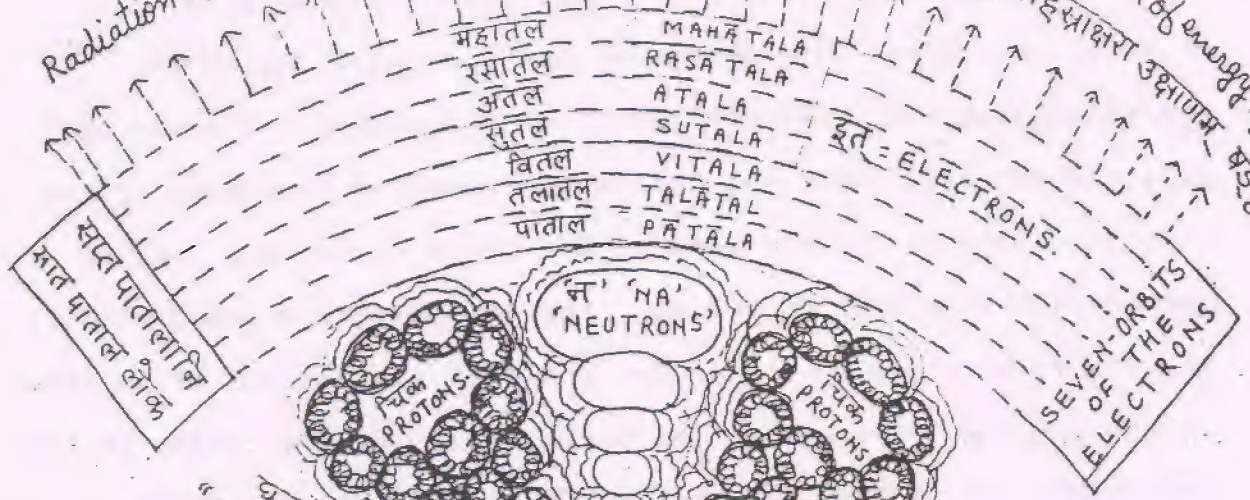 Radiation
of energy
उक्षाणाम
महातल MAHĀTALA
रसातल RASĀTALA
अतल ATALA
सुतल SUTALA
वितल VITALA
तलातल TALĀTAL
पाताल = PĀTĀLA
इत = ELECTRONS.
सप्त पातालानि
सात पाताल लोक
SEVEN-ORBITS
OF THE
ELECTRONS
'न' 'NA'
'NEUTRONS'
PROTONS.
PROTONS